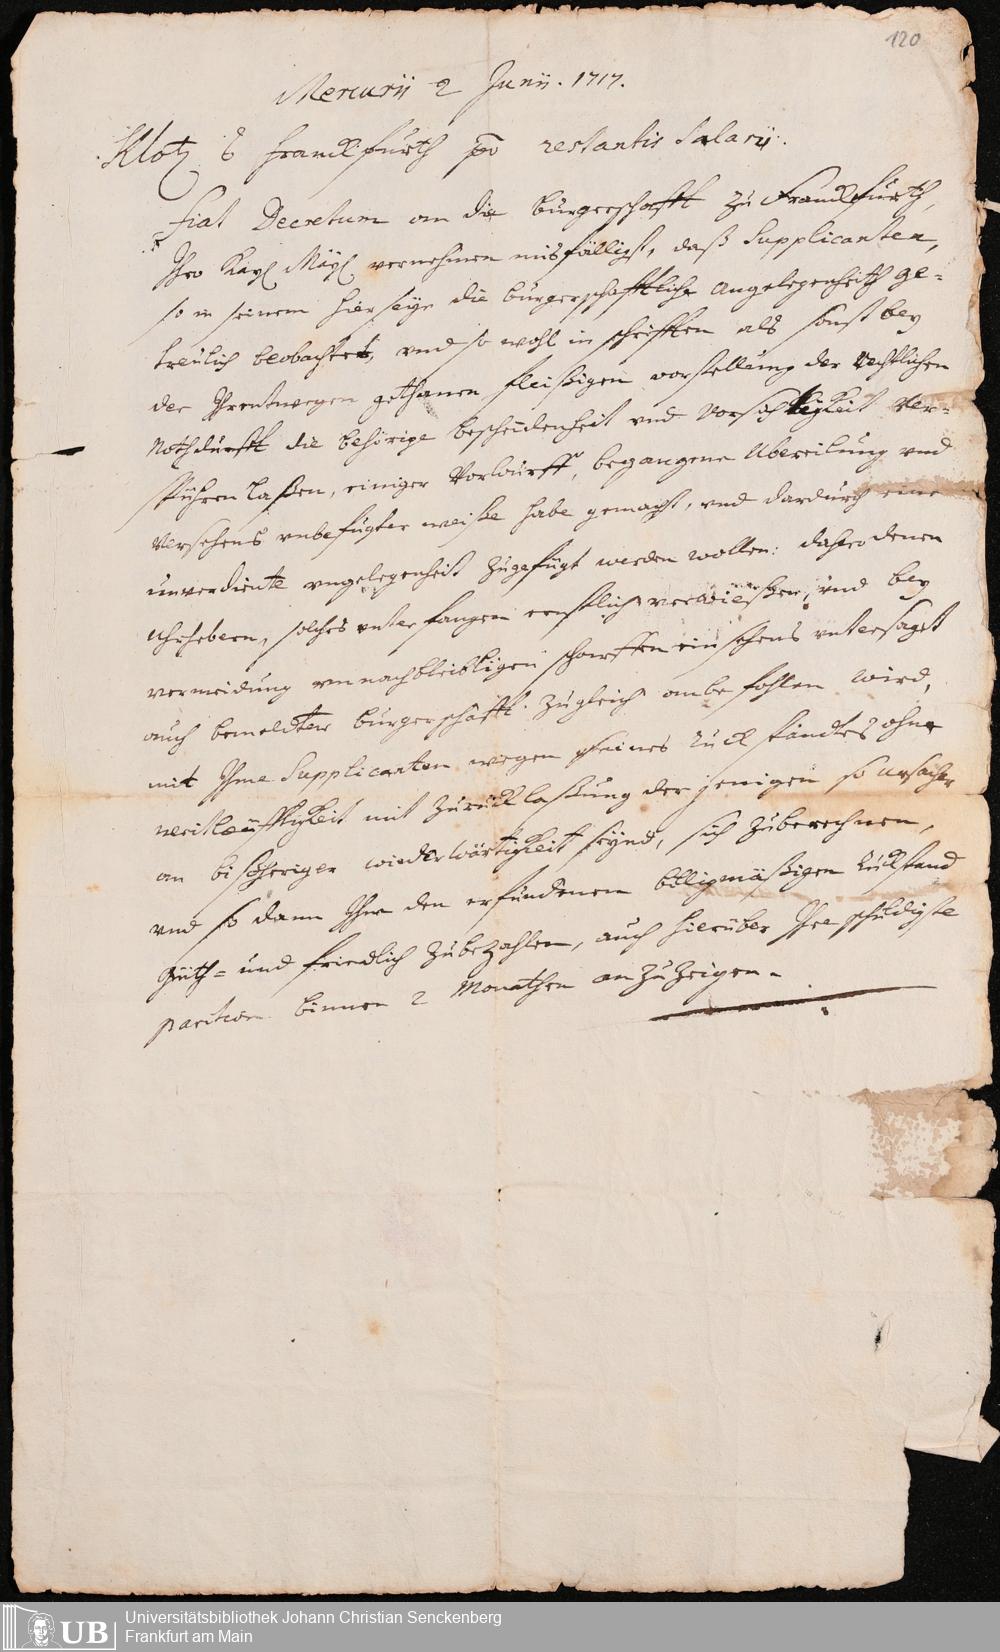 120
Mercurii 2 Junii. 1717.
Klotz Franckfurth pto restantis Salarii.
Fiat Decretum an die burgerschafft zu Franckfurth,
Ihro Kayl. Mayl. vernehmen misfälligst, daß Supplicanten,
so in seinem hierseyn die burgerschafftliche angelegenheith ge-
treulich beobachtet, vnd so wohl in schrifften als sonst bey
der Ihrentwegen gethanen fleißigen vorstellung der rechtlichen
Nothdurfft die behörige bescheidenheit vnd vorsichtigkeit ver-
spühren laßen, einiger Vorwurff, begangene Ubereilung vnd
versehens vnbefugter weiße habe gemacht, vnd dardurch eine
unverdiente vngelegenheit zugefügt werden wollen: dahero denen
Uhrhebern, solches unterfangen ernstlich verwießen, vnd bey
vermeidung unnachbleibligen scharffen einsehens untersaget
auch bemeldter burgerschafft zugleich anbefohlen wird,
mit Ihme Supplicanten wegen seines Ruckstandtes ohne
weitleüfftigkeit mit zurucklaßung der jenigen so ursacher
an bißheriger wiederwärtigkeit seynd, sich zuberechnen,
vnd so dann Ihm den erfundenen billigmäßigen Ruckstand
güth- und friedlich zubezahlen, auch hierüber Ihre schuldigste
parition binnen 2 Monathen anzuzeigen.
UB Universitätsbibliothek Johann Christian Senckenberg
Frankfurt am Main